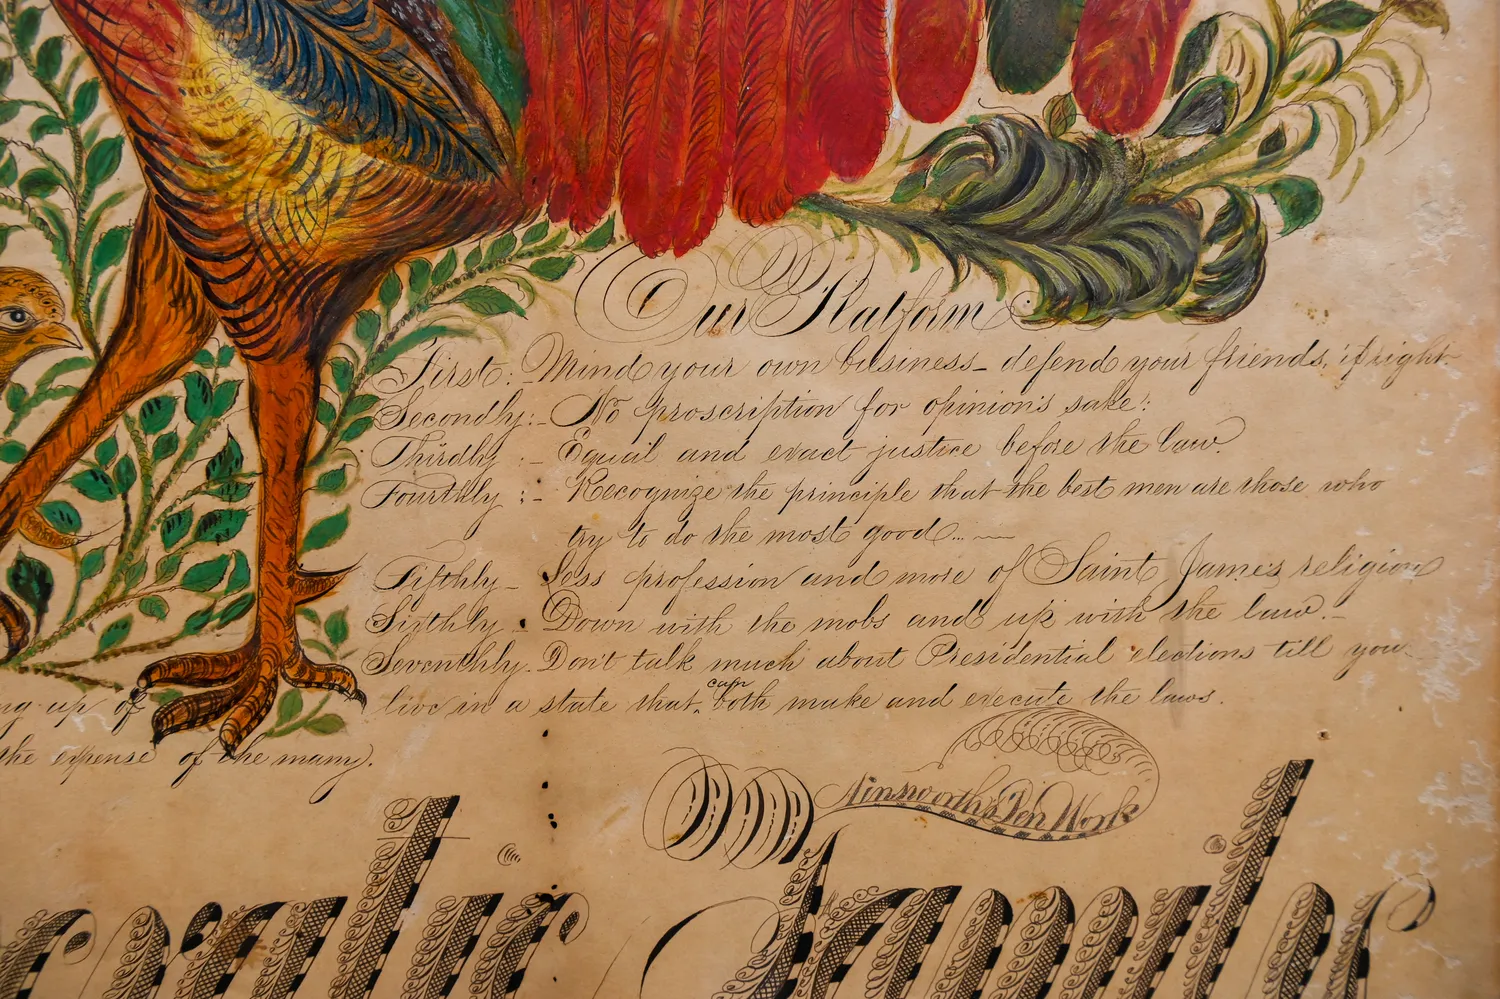 Our Platform
First:- Mind your own business- defend your friends, if right.
Secondly:- No proscription for opinion's sake:
Thirdly :- Equal and exact justice before the law.
Fourthly :- Recognize the principle that the best men are those who
try to do the most good...
Fifthly- Less profession and more of Saint James religion
Sixthly : Down with the mobs and up with the law.-
Seventhly- Don't talk much about Presidential elections till you
live in a state that can both make and execute the laws.
ng up of
the expense of the many.
Ainsworth's Pen Work
ocratic Family